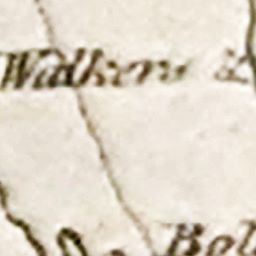 Walkers &
Bel